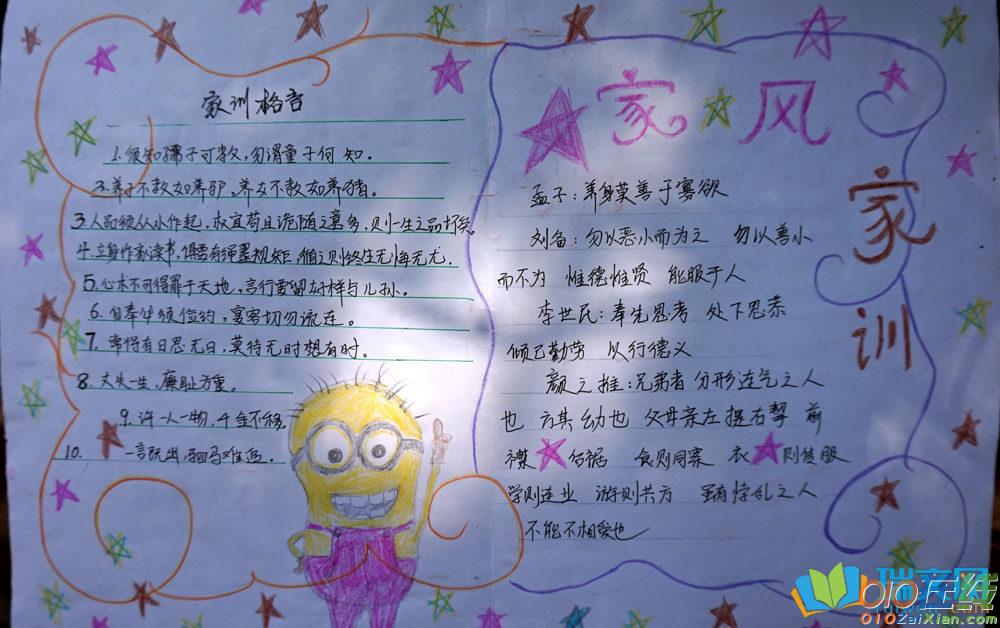 家训格言
1. 须知孺子可教,勿谓童子何知。
2. 养子不教如养驴,养女不教如养猪。
3. 人品须从小作起,权宜苟且诡随之意多,则一生之品坏矣。
4. 立身作家读书,俱要有绳墨规矩,循之则终生无悔无尤。
5. 心术不可得罪于天地,言行要留好样与儿孙。
6. 自奉必须俭约,宴客切勿流连。
7. 常将有日思无日,莫待无时想有时。
8. 丈夫一生,廉耻为重。
9. 许人一物,千金不移。
10. 一言既出,驷马难追。
家风
家训
孟子:养身莫善于寡欲
刘备:勿以恶小而为之 勿以善小
而不为 惟德惟贤 能服于人
李世民:奉先思孝 处下思恭
倾己勤劳 以行德义
颜之推:兄弟者 分形连气之人
也 方其幼也 父母亲左提右挈 前
襟 后裾 食则同案 衣 则传服
学则连业 游则共方 虽有悖乱之人
不能不相爱也
010在线
010ZaiXian.com